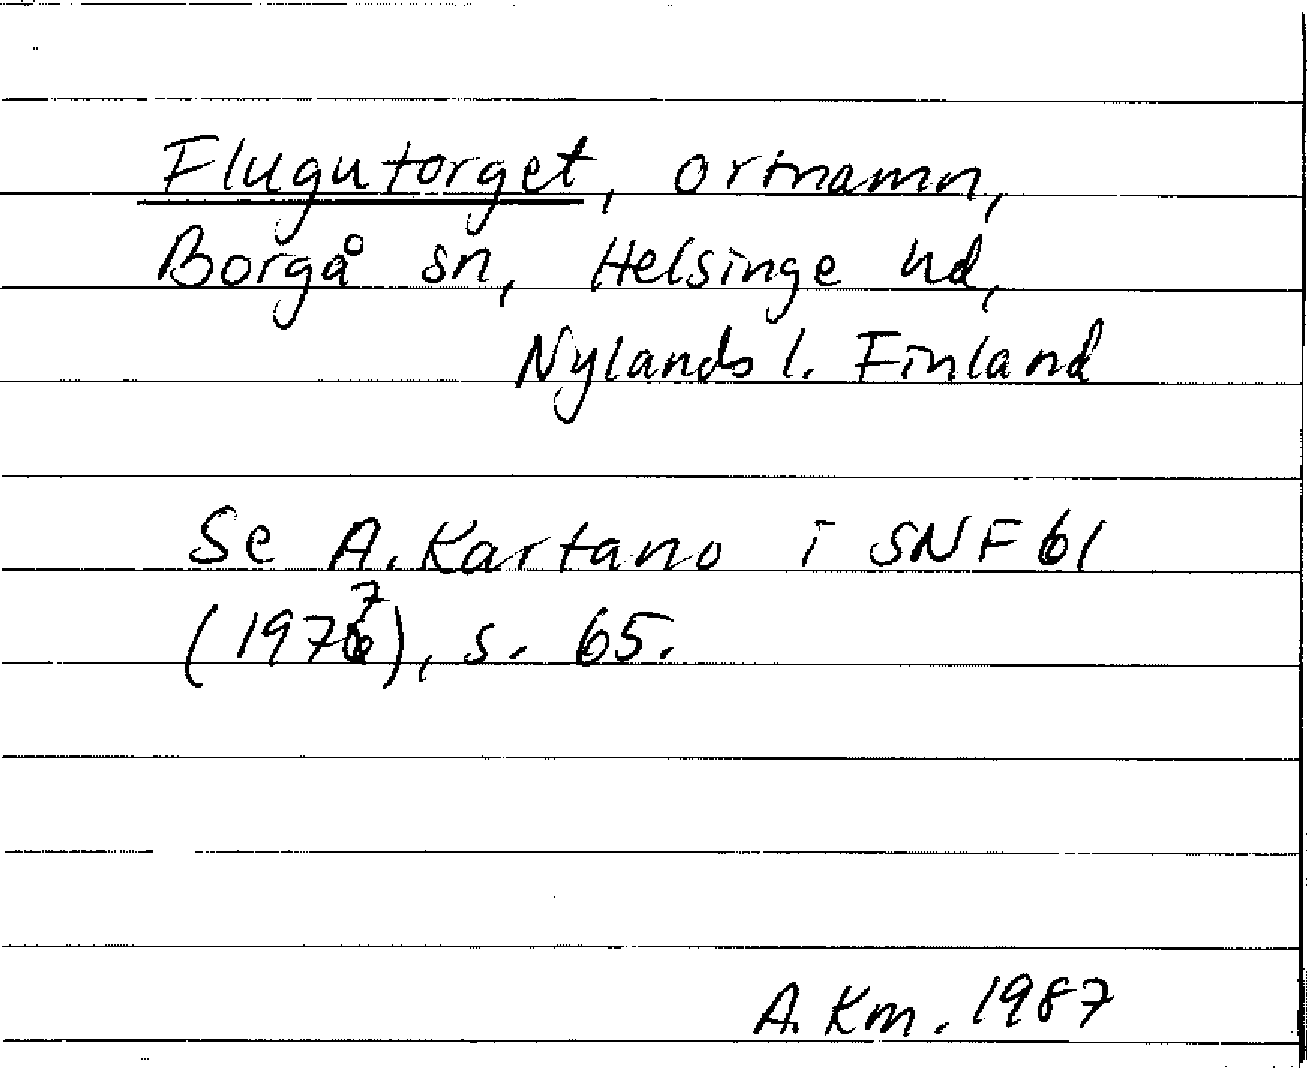 Flugutorget, ortnamn,
Borgå sn, Helsinge hd,
Nylands l. Finland
Se A. Kartano i SNF 61
(1977), s. 65.
A. Km. 1987